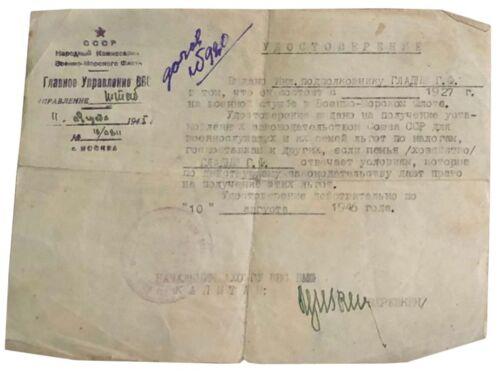 СССР
Народный Комиссариат
Военно-Морского Флота
Главное Управление ВВС
УПРАВЛЕНИЕ
1945 г.
г. МОСКВА
УДОСТОВЕРЕНИЕ
Выдано Инж. подполковнику ГЛАДИН Г.Ф.
в том, что он состоит с 1927 г.
на военной службе в Военно-Морском Флоте.
Удостоверение выдано на получение уста-
новленных законодательством Союза ССР для
военнослужащих и их семей льгот по налогам,
госпоставкам и других, если семья /хозяйство/
ГЛАДИН Г.Ф. отвечает условиям, которые
по действующему законодательству дают право
на получение этих льгот.
Удостоверение действительно по
"10" августа 1946 года.
НАЧАЛЬНИК ВВС ВМФ
КАПИТАН: